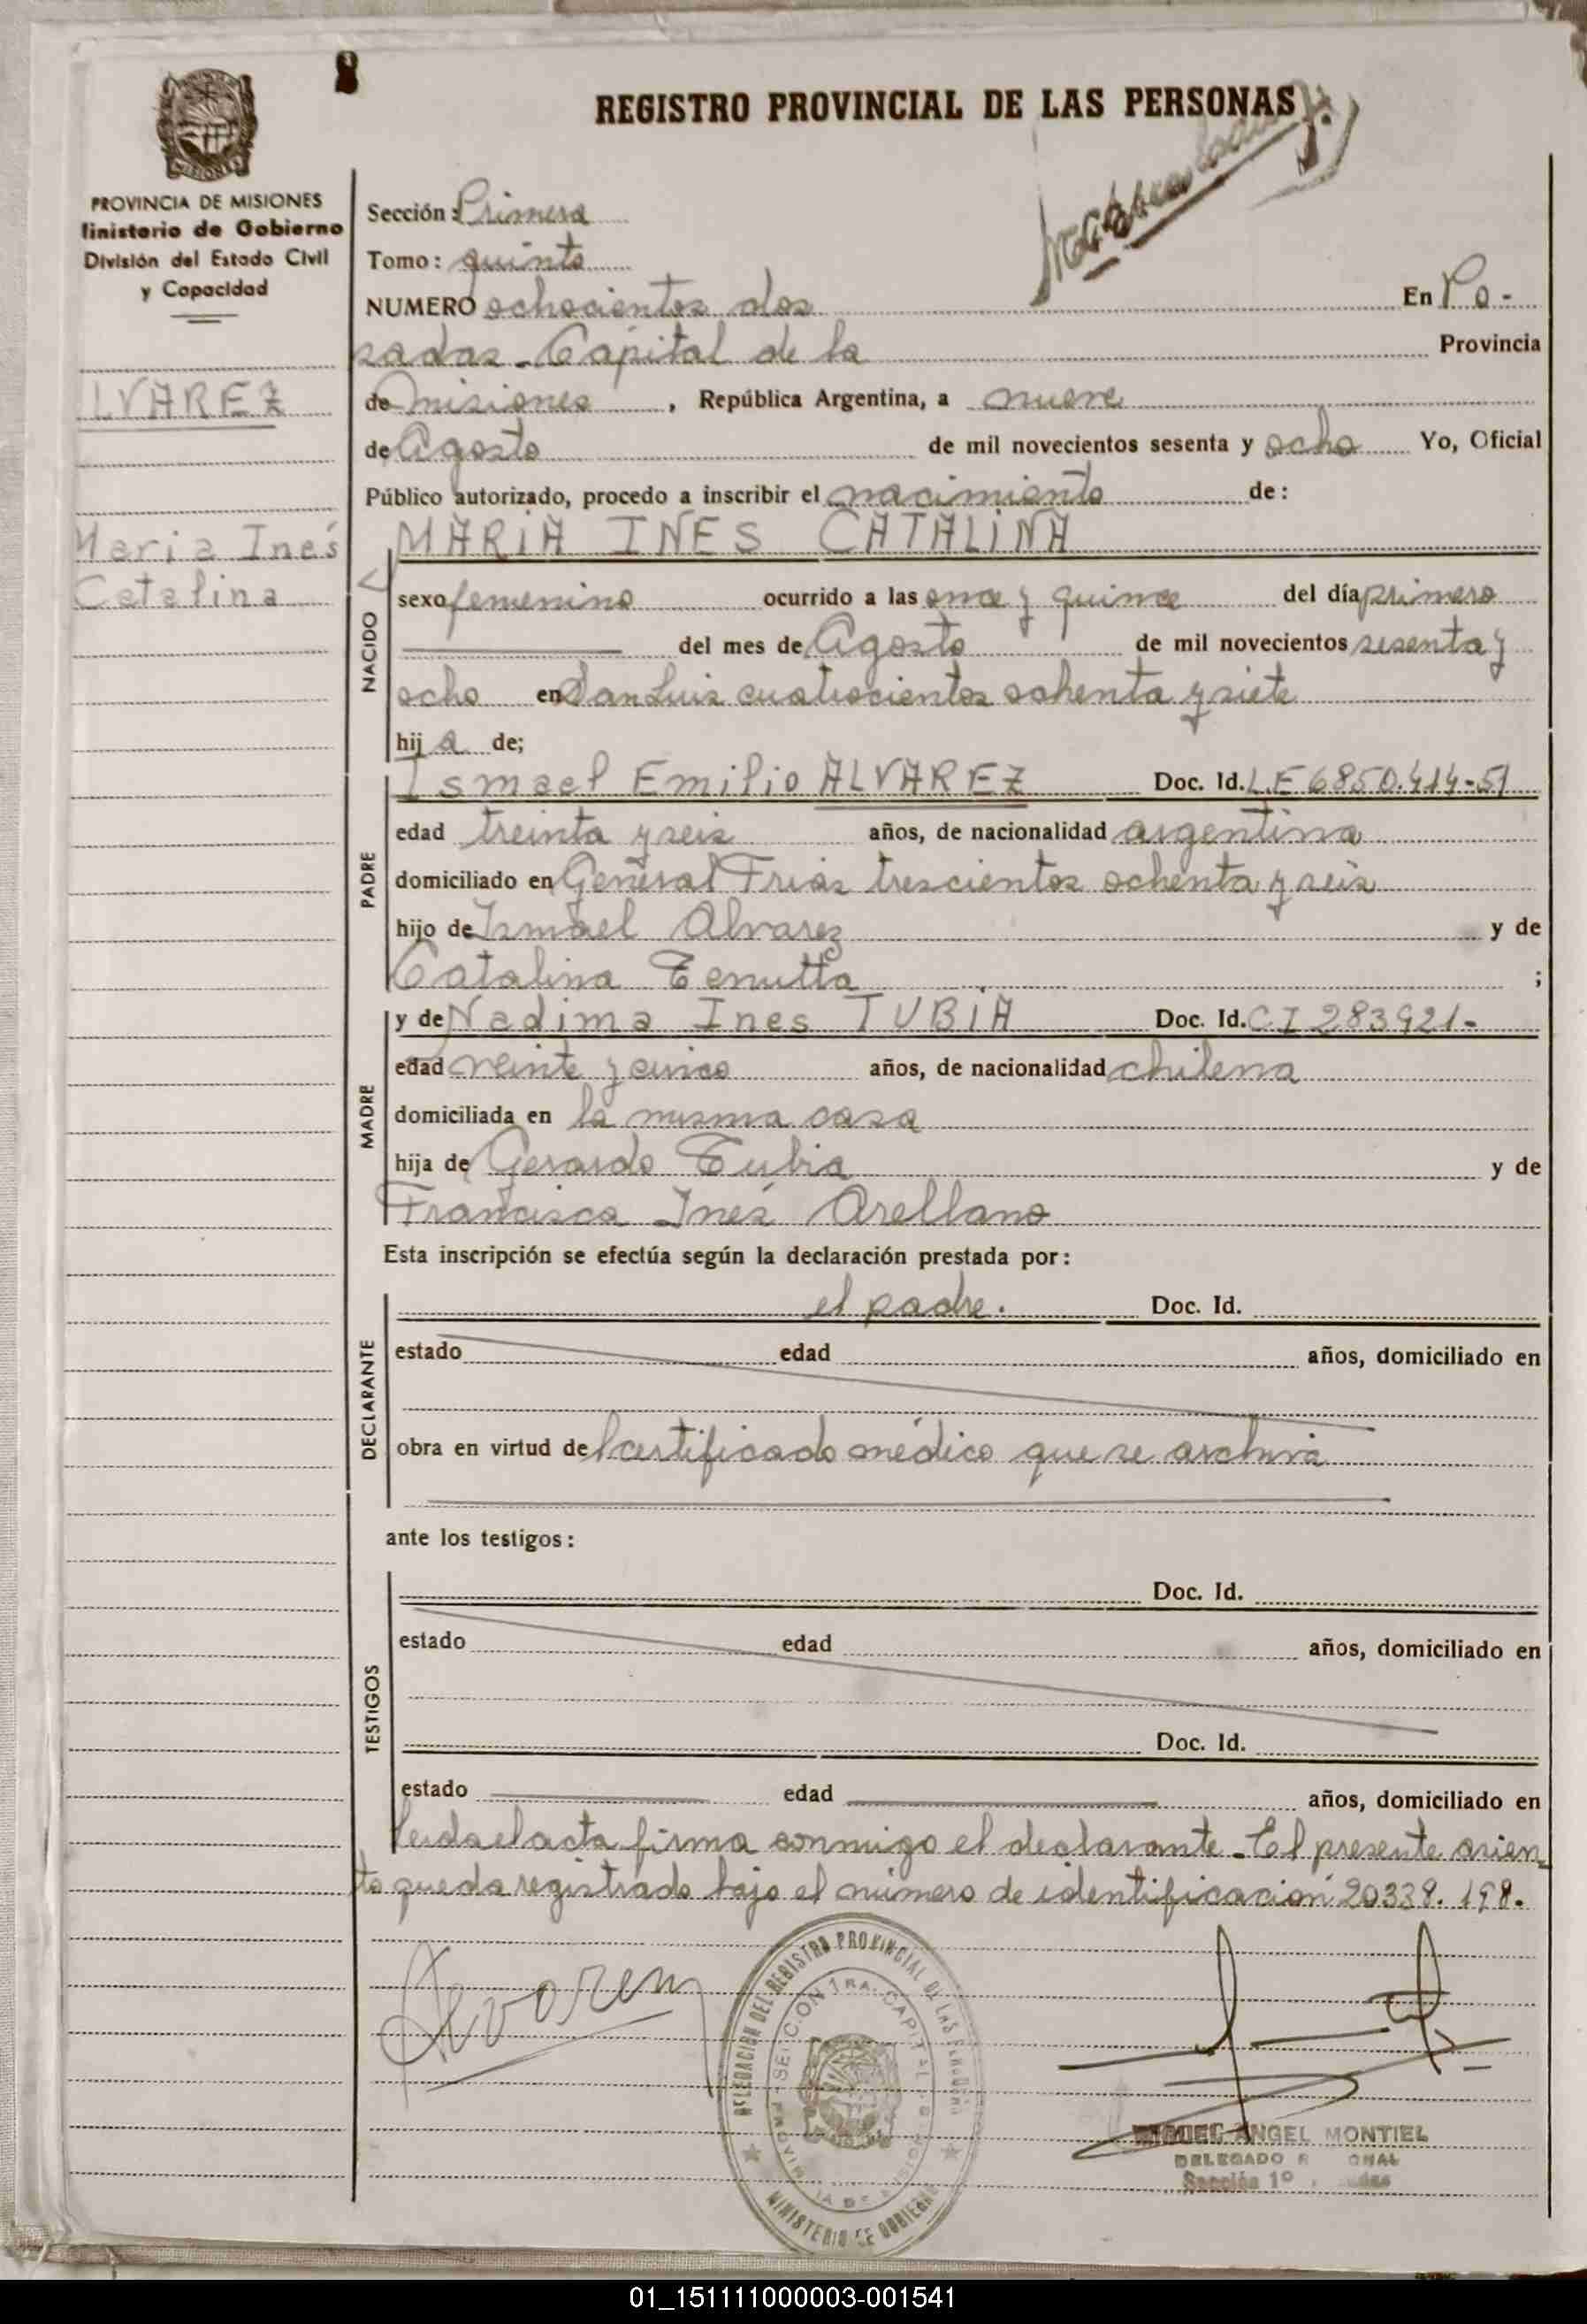 REGISTRO PROVINCIAL DE LAS PERSONAS
Matriculada
MISIONES
PROVINCIA DE MISIONES
linisterio de Gobierno
División del Estado Civil
y Capacidad
LVAREZ
Maria Inés
Catalina
Sección: Primera
Tomo: quinto
NUMERO ochocientos dos En Po-
sadas - Capital de la Provincia
de misiones, República Argentina, a nueve
de Agosto de mil novecientos sesenta y ocho Yo, Oficial
Público autorizado, procedo a inscribir el nacimiento de:
MARIA INES CATALINA
NACIDO
sexo femenino ocurrido a las once y quince del día primero
del mes de Agosto de mil novecientos sesenta y
ocho en San Luis cuatrocientos ochenta y siete
hija de;
PADRE
Ismael Emilio ALVAREZ Doc. Id. L.E 6850.414-51
edad treinta y seis años, de nacionalidad argentina
domiciliado en General Frias trescientos ochenta y seis
hijo de Ismael Alvarez y de
Catalina Tenutta ;
MADRE
y de Nadima Ines TUBIA Doc. Id. C.I 283921-
edad veinte y cinco años, de nacionalidad chilena
domiciliada en la misma casa
hija de Gerardo Tubia y de
Francisca Inés Arellano
Esta inscripción se efectúa según la declaración prestada por:
DECLARANTE
el padre. Doc. Id.
estado edad años, domiciliado en
obra en virtud del certificado médico que se archiva
ante los testigos:
TESTIGOS
Doc. Id.
estado edad años, domiciliado en
Doc. Id.
estado edad años, domiciliado en
leida el acta firma conmigo el declarante - El presente asien-
to queda registrado bajo el número de identificación 20338.198.
DELEGACION DEL REGISTRO PROVINCIAL DE LAS PERSONAS
SECCION 1RA. CAPITAL
PROVINCIA DE MISIONES
MINISTERIO DE GOBIERNO
MIGUEL ANGEL MONTIEL
DELEGADO
Sección 1º
01_151111000003-001541